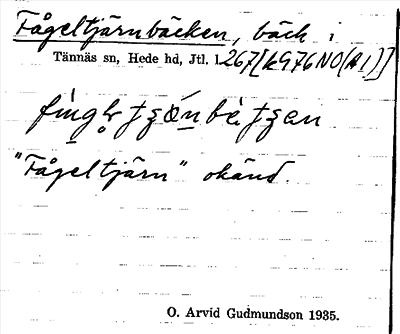 Fågeltjärnbäcken, bäck i
Tännäs sn, Hede hd, Jtl. l. 267 [k976NO(A1)]
"Fågeltjärn" okänd.
O. Arvid Gudmundson 1935.